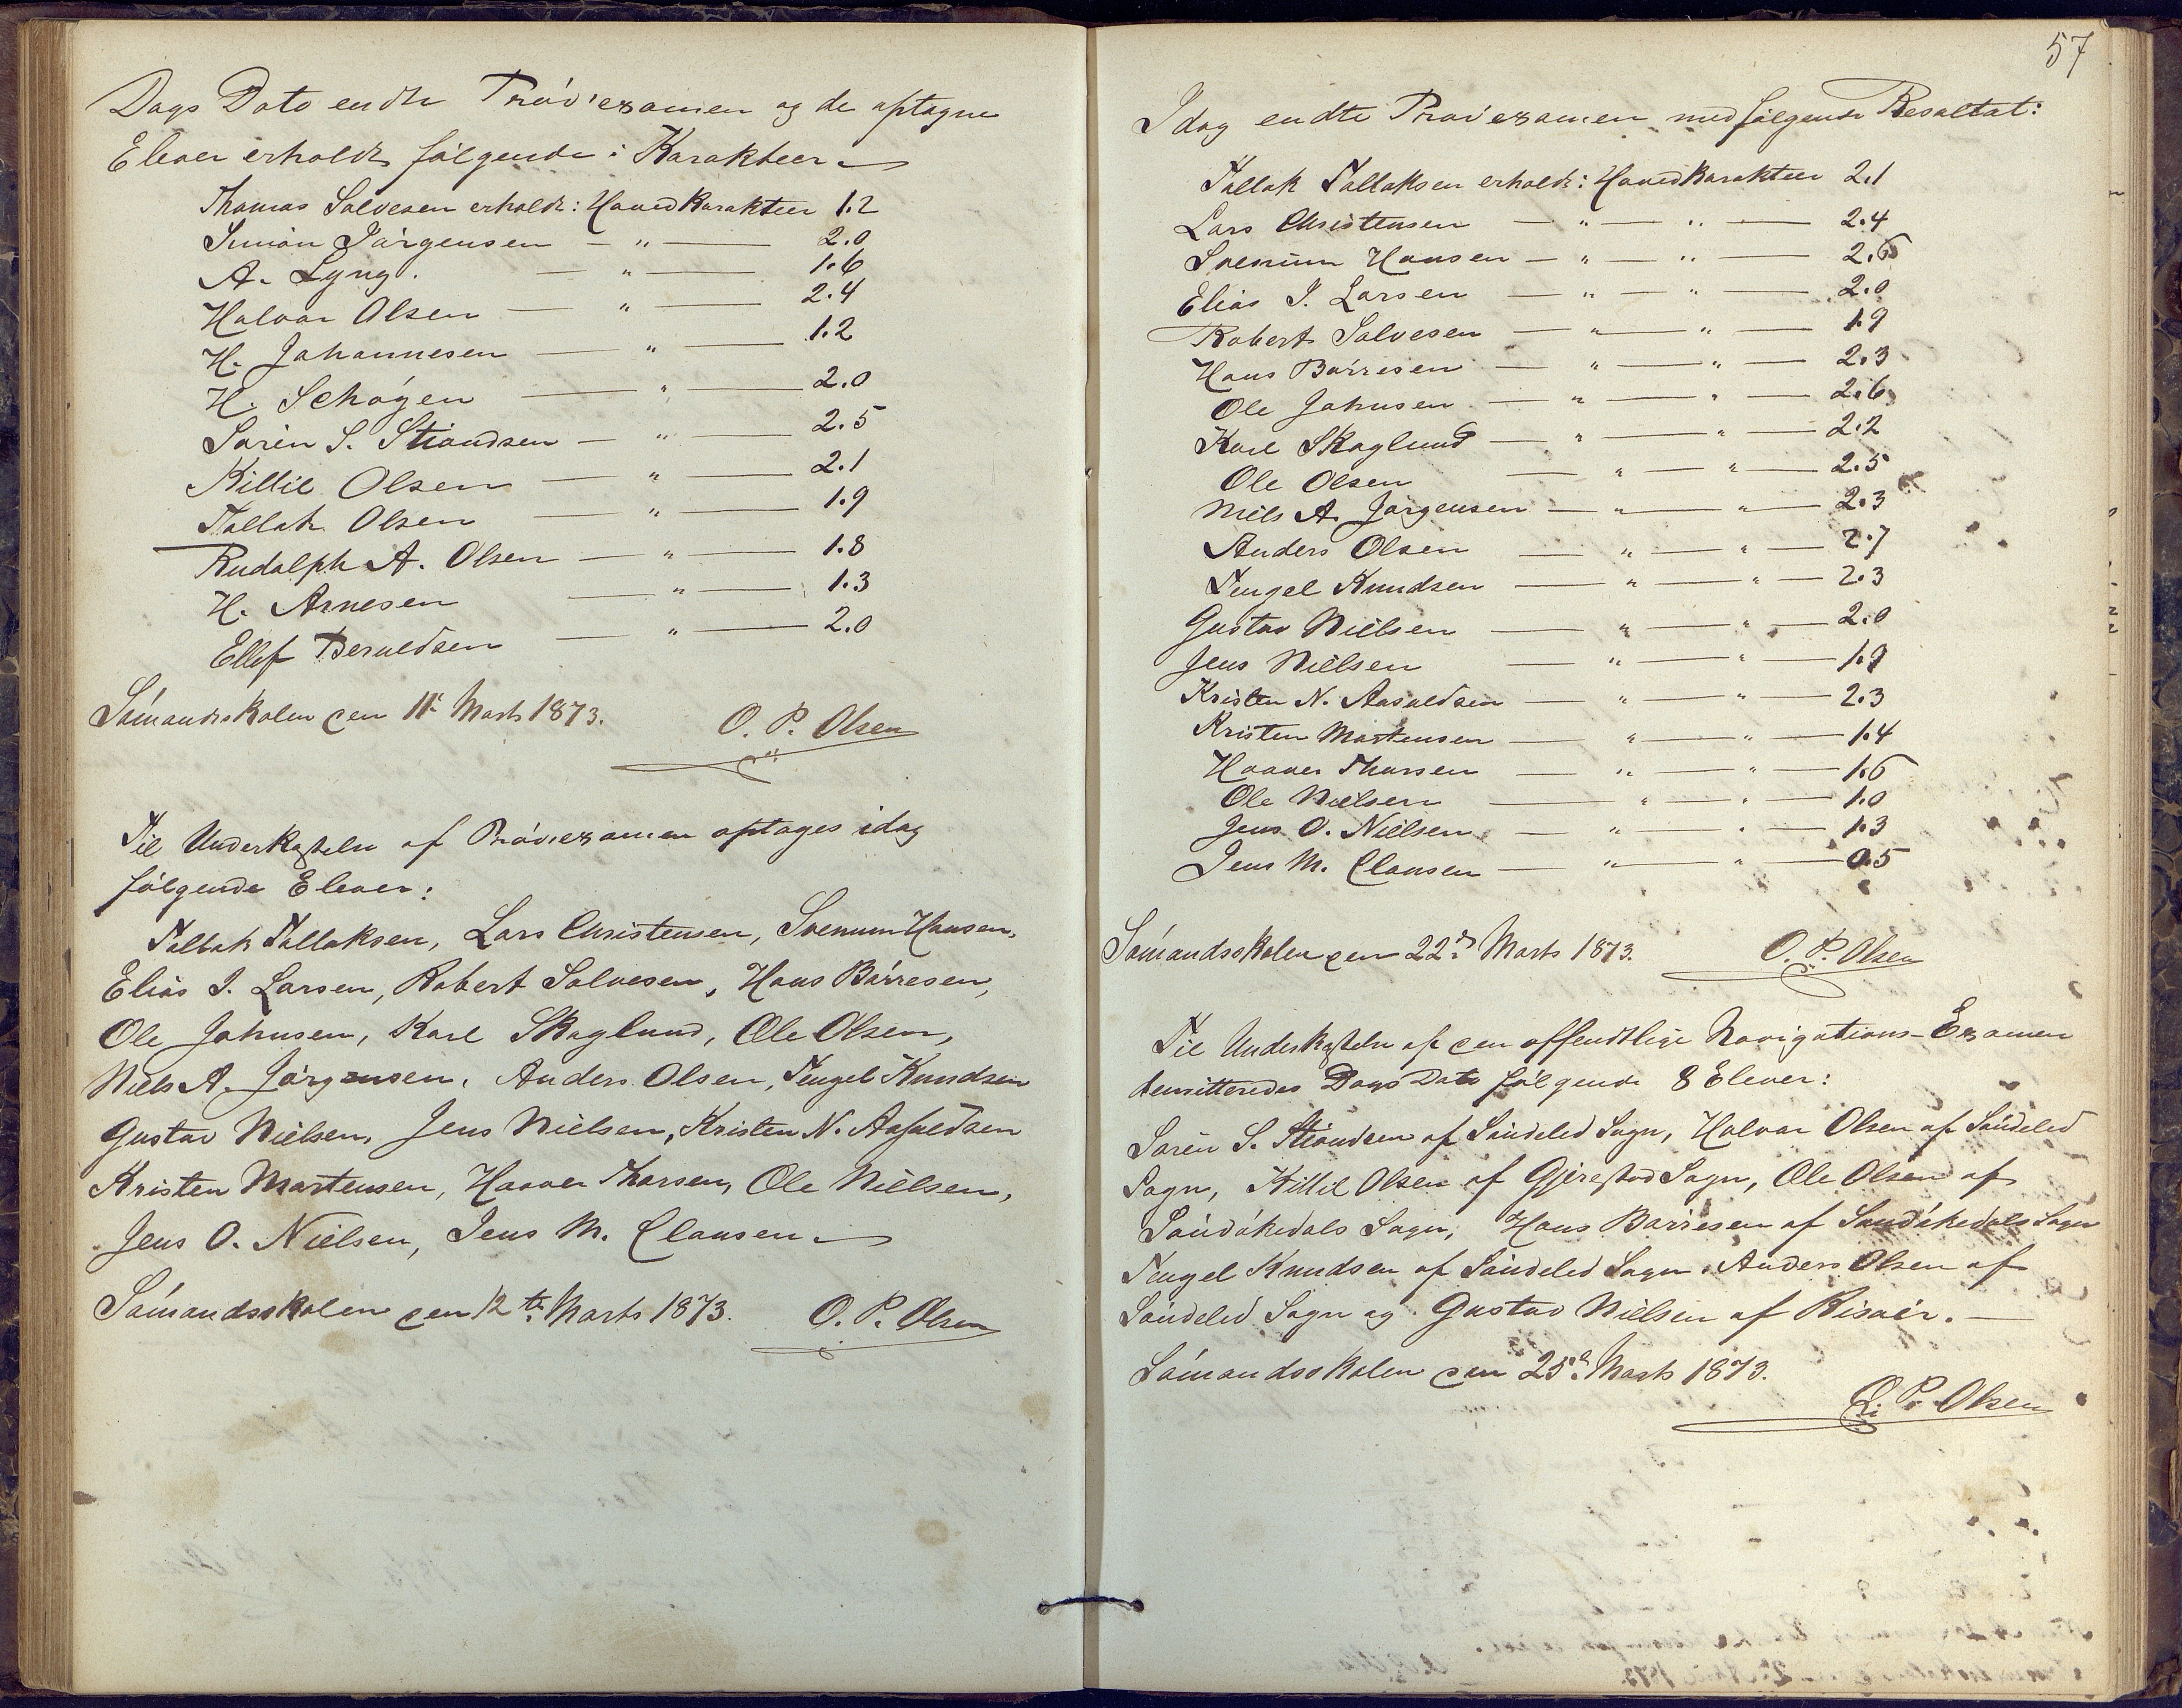 Dags Dato endte Prøveexamen og de optagne
Elever erholdt følgende: Karakteer
Thomas Salvesen erholdt: Hoved Karakteer 1.2
Simon Jörgensen — " — 2.0
A. Lyng. — " — 1.6
Halvor Olsen — " — 2.4
H. Johannesen — " — 1.2
H. Schøyen — " — 2.0
Søren S. Strandsen — " — 2.5
Killil Olsen — " — 2.1
Tallak Olsen — " — 1.9
Rudolph A. Olsen — " — 1.8
H. Arnesen — " — 1.3
Ellef Beruldsen — " — 2.0
Sømandsskolen den 11te Marts 1873.
O. P. Olsen
Til Underkastelse af Prøveexamen optages idag
følgende Elever:
Tallak Tallaksen, Lars Christensen, Svenum Hansen,
Elias I. Larsen, Robert Salvesen, Hans Börresen,
Ole Johnsen, Karl Skoglund, Ole Olsen,
Niels A. Jörgensen, Anders Olsen, Tengel Knudsen
Gustav Nielsen, Jens Nielsen, Kristen N. Aasuldsen
Kristen Mortensen, Haaver Thorsen, Ole Nielsen,
Jens O. Nielsen, Jens M. Clausen
Sømandsskolen den 12te Marts 1873. O. P. Olsen
57
Idag endte Prøveexamen med følgende Resultat:
Tallak Tallaksen erholdt: Hoved Karakteer 2.1
Lars Christensen — " — " — 2.4
Svenum Hansen — " — " — 2.6
Elias I. Larsen — " — " — 2.0
Robert Salvesen — " — " — 1.9
Hans Börresen — " — " — 2.3
Ole Johnsen — " — " — 2.6
Karl Skoglund — " — " — 2.2
Ole Olsen — " — " — 2.5
Niels A. Jörgensen — " — " — 2.3
Anders Olsen — " — " — 2.7
Tengel Knudsen — " — " — 2.3
Gustav Nielsen — " — " — 2.0
Jens Nielsen — " — " — 1.9
Kristen N. Aasuldsen — " — " — 2.3
Kristen Mortensen — " — " — 1.4
Haaver Thorsen — " — " — 1.6
Ole Nielsen — " — " — 1.0
Jens O. Nielsen — " — " — 1.3
Jens M. Clausen — " — " — 0.5
Sømandsskolen den 22de Marts 1873. O. P. Olsen
Til Underkastelse af den offendtlige Navigations-Examen
demitteredes Dags Dato følgende 8 Elever:
Søren S. Strandsen af Søndeled Sogn, Halvor Olsen af Søndeled
Sogn, Killil Olsen af Gjerestad Sogn, Ole Olsen af
Sandøkedals Sogn, Hans Börresen af Sandøkedals Sogn
Tengel Knudsen af Søndeled Sogn, Anders Olsen af
Søndeled Sogn og Gustav Nielsen af Risøer. —
Sømandsskolen den 25de Marts 1873.
O. P. Olsen